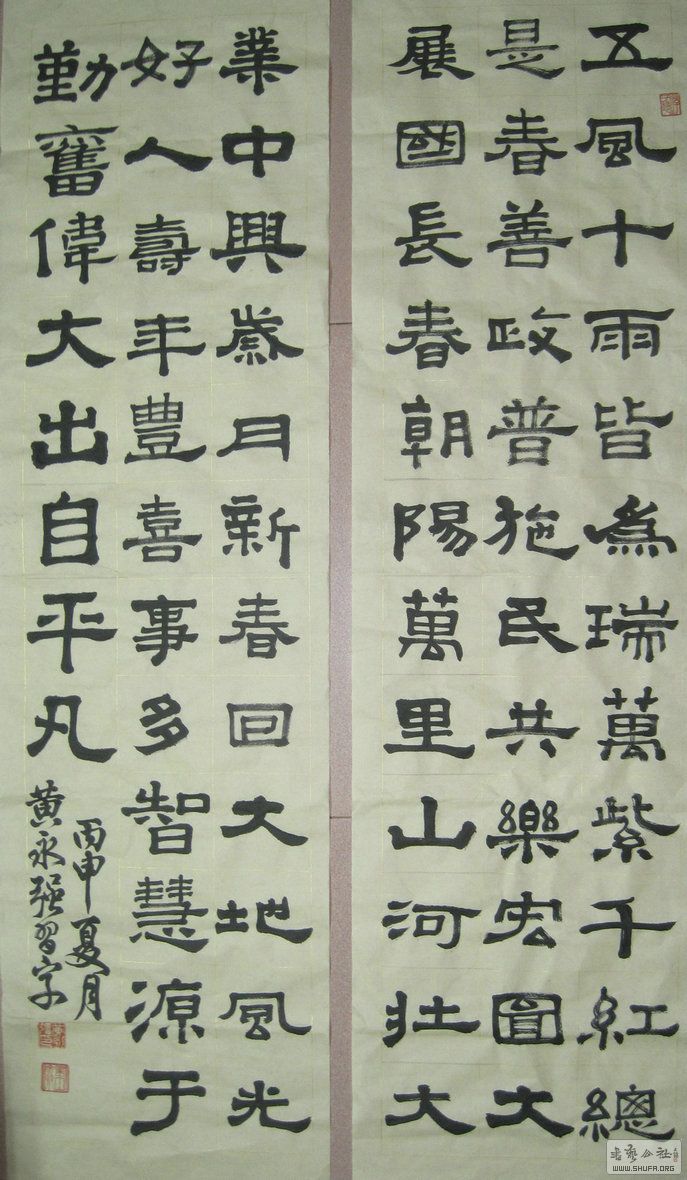 五風十雨皆為瑞萬紫千紅總
是春善政普施民共樂宏圖大
展國長春朝陽萬里山河壯大
業中興歲月新春回大地風光
好人壽年豐喜事多智慧源于
勤奮偉大出自平凡
丙申夏月
黄永强習字
书艺公社
WWW.SHUFA.ORG